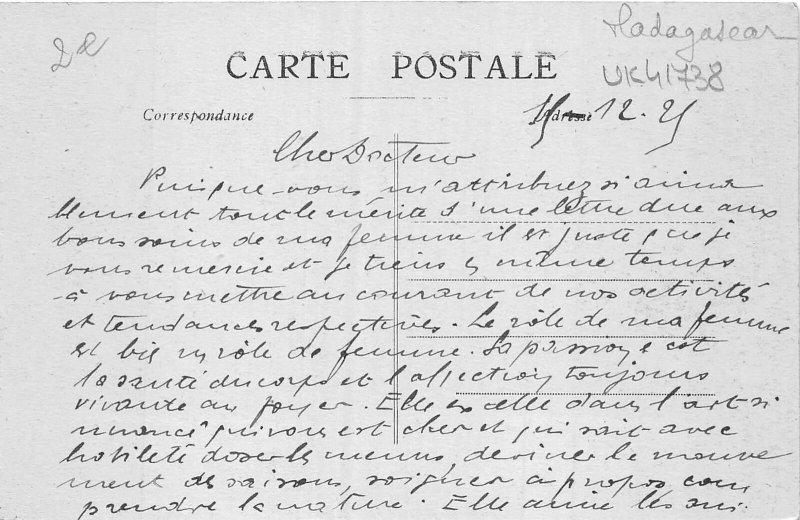 2e
Madagascar
UK41738
CARTE POSTALE
Correspondance
Adresse
15-12.25
Cher Docteur
Puisque vous m'attribuez si aima
blement tout le mérite d'une lettre due aux
bons soins de ma femme il est juste que je
vous remercie et je tiens en même temps
à vous mettre au courant de nos activités
et tendances respectives. Le rôle de ma femme
est bien un rôle de femme. Sa passion c'est
la santé du corps et l'affection toujours
vivante au foyer. Elle excelle dans l'art si
nuancé qui vous est cher et qui sait avec
habileté doser les menus, deviner le mouve
ment des saisons, soigner à propos com
prendre la nature. Elle aime les ani.